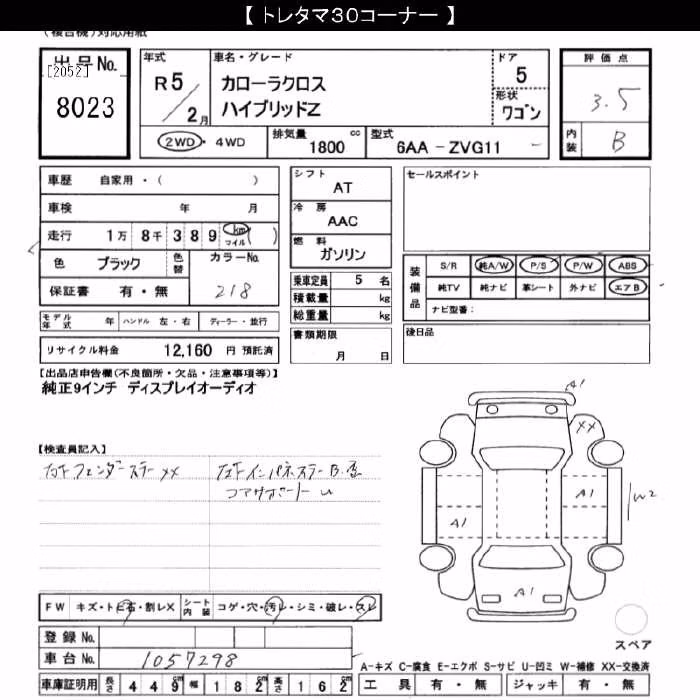 【 トレタマ３０コーナー 】
(複合機)対応用紙
出品No. [2052] 8023
年式 R5/2月
車名・グレード カローラクロス ハイブリッドZ
ドア 5
形状 ワゴン
評価点 3.5
内装 B
2WD・4WD
排気量 1800 cc
型式 6AA - ZVG11 -
車歴 自家用・( )
車検 年 月
走行 1万 8千 3 8 9 km マイル ( )
色 ブラック 色替
カラーNo. 218
保証書 有・無
シフト AT
冷房 AAC
燃料 ガソリン
乗車定員 5 名
積載量 kg
総重量 kg
書類期限 月 日
セールスポイント
装備品 S/R 純A/W P/S P/W ABS
純TV 純ナビ 革シート 外ナビ エアB
ナビ型番:
後日品
モデル年式 年 ハンドル 左・右 ディーラー・並行
リサイクル料金 12,160 円 預託済
【出品店申告欄(不良箇所・欠品・注意事項等)】
純正9インチ ディスプレイオーディオ
【検査員記入】
右Fフェンダーステー XX
コアサポート u
A1
XX
A1
W2
A1
A1
スペア
FW キズ・トビ石・割レX シート内装 コゲ・穴・汚レ・シミ・破レ・スレ
登録No.
車台No. 1057298
車庫証明用 長さ 4 4 9 cm 幅 1 8 2 cm 高さ 1 6 2 cm
A-キズ C-腐食 E-エクボ S-サビ U-凹ミ W-補修 XX-交換済
工具 有・無 ジャッキ 有・無